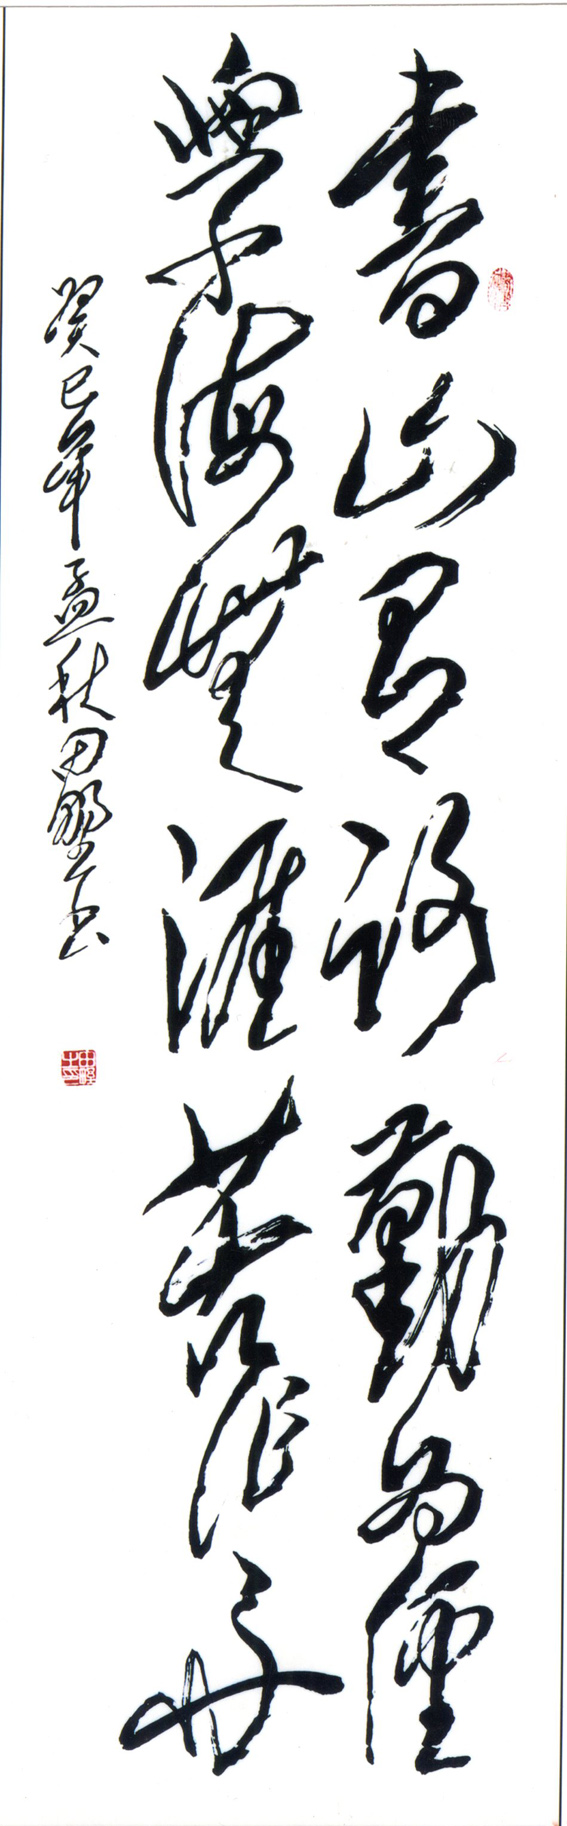 書山有路勤為徑
學海無涯苦作舟
癸巳年孟秋田